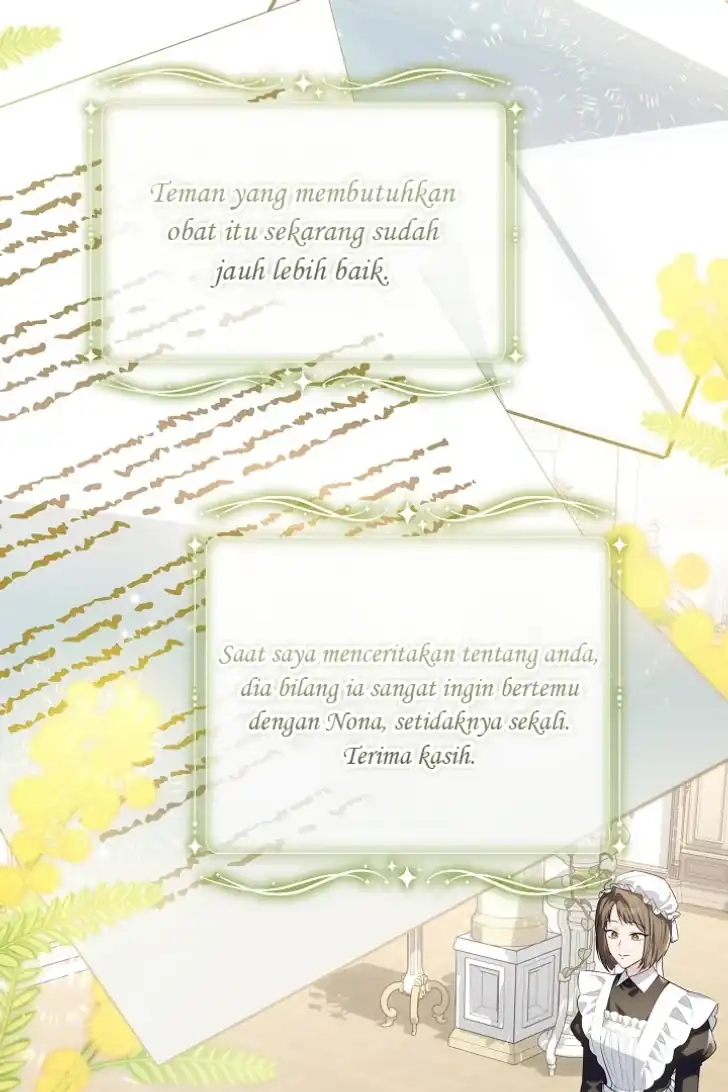 Teman yang membutuhkan
obat itu sekarang sudah
jauh lebih baik.
Saat saya menceritakan tentang anda,
dia bilang ia sangat ingin bertemu
dengan Nona, setidaknya sekali.
Terima kasih.